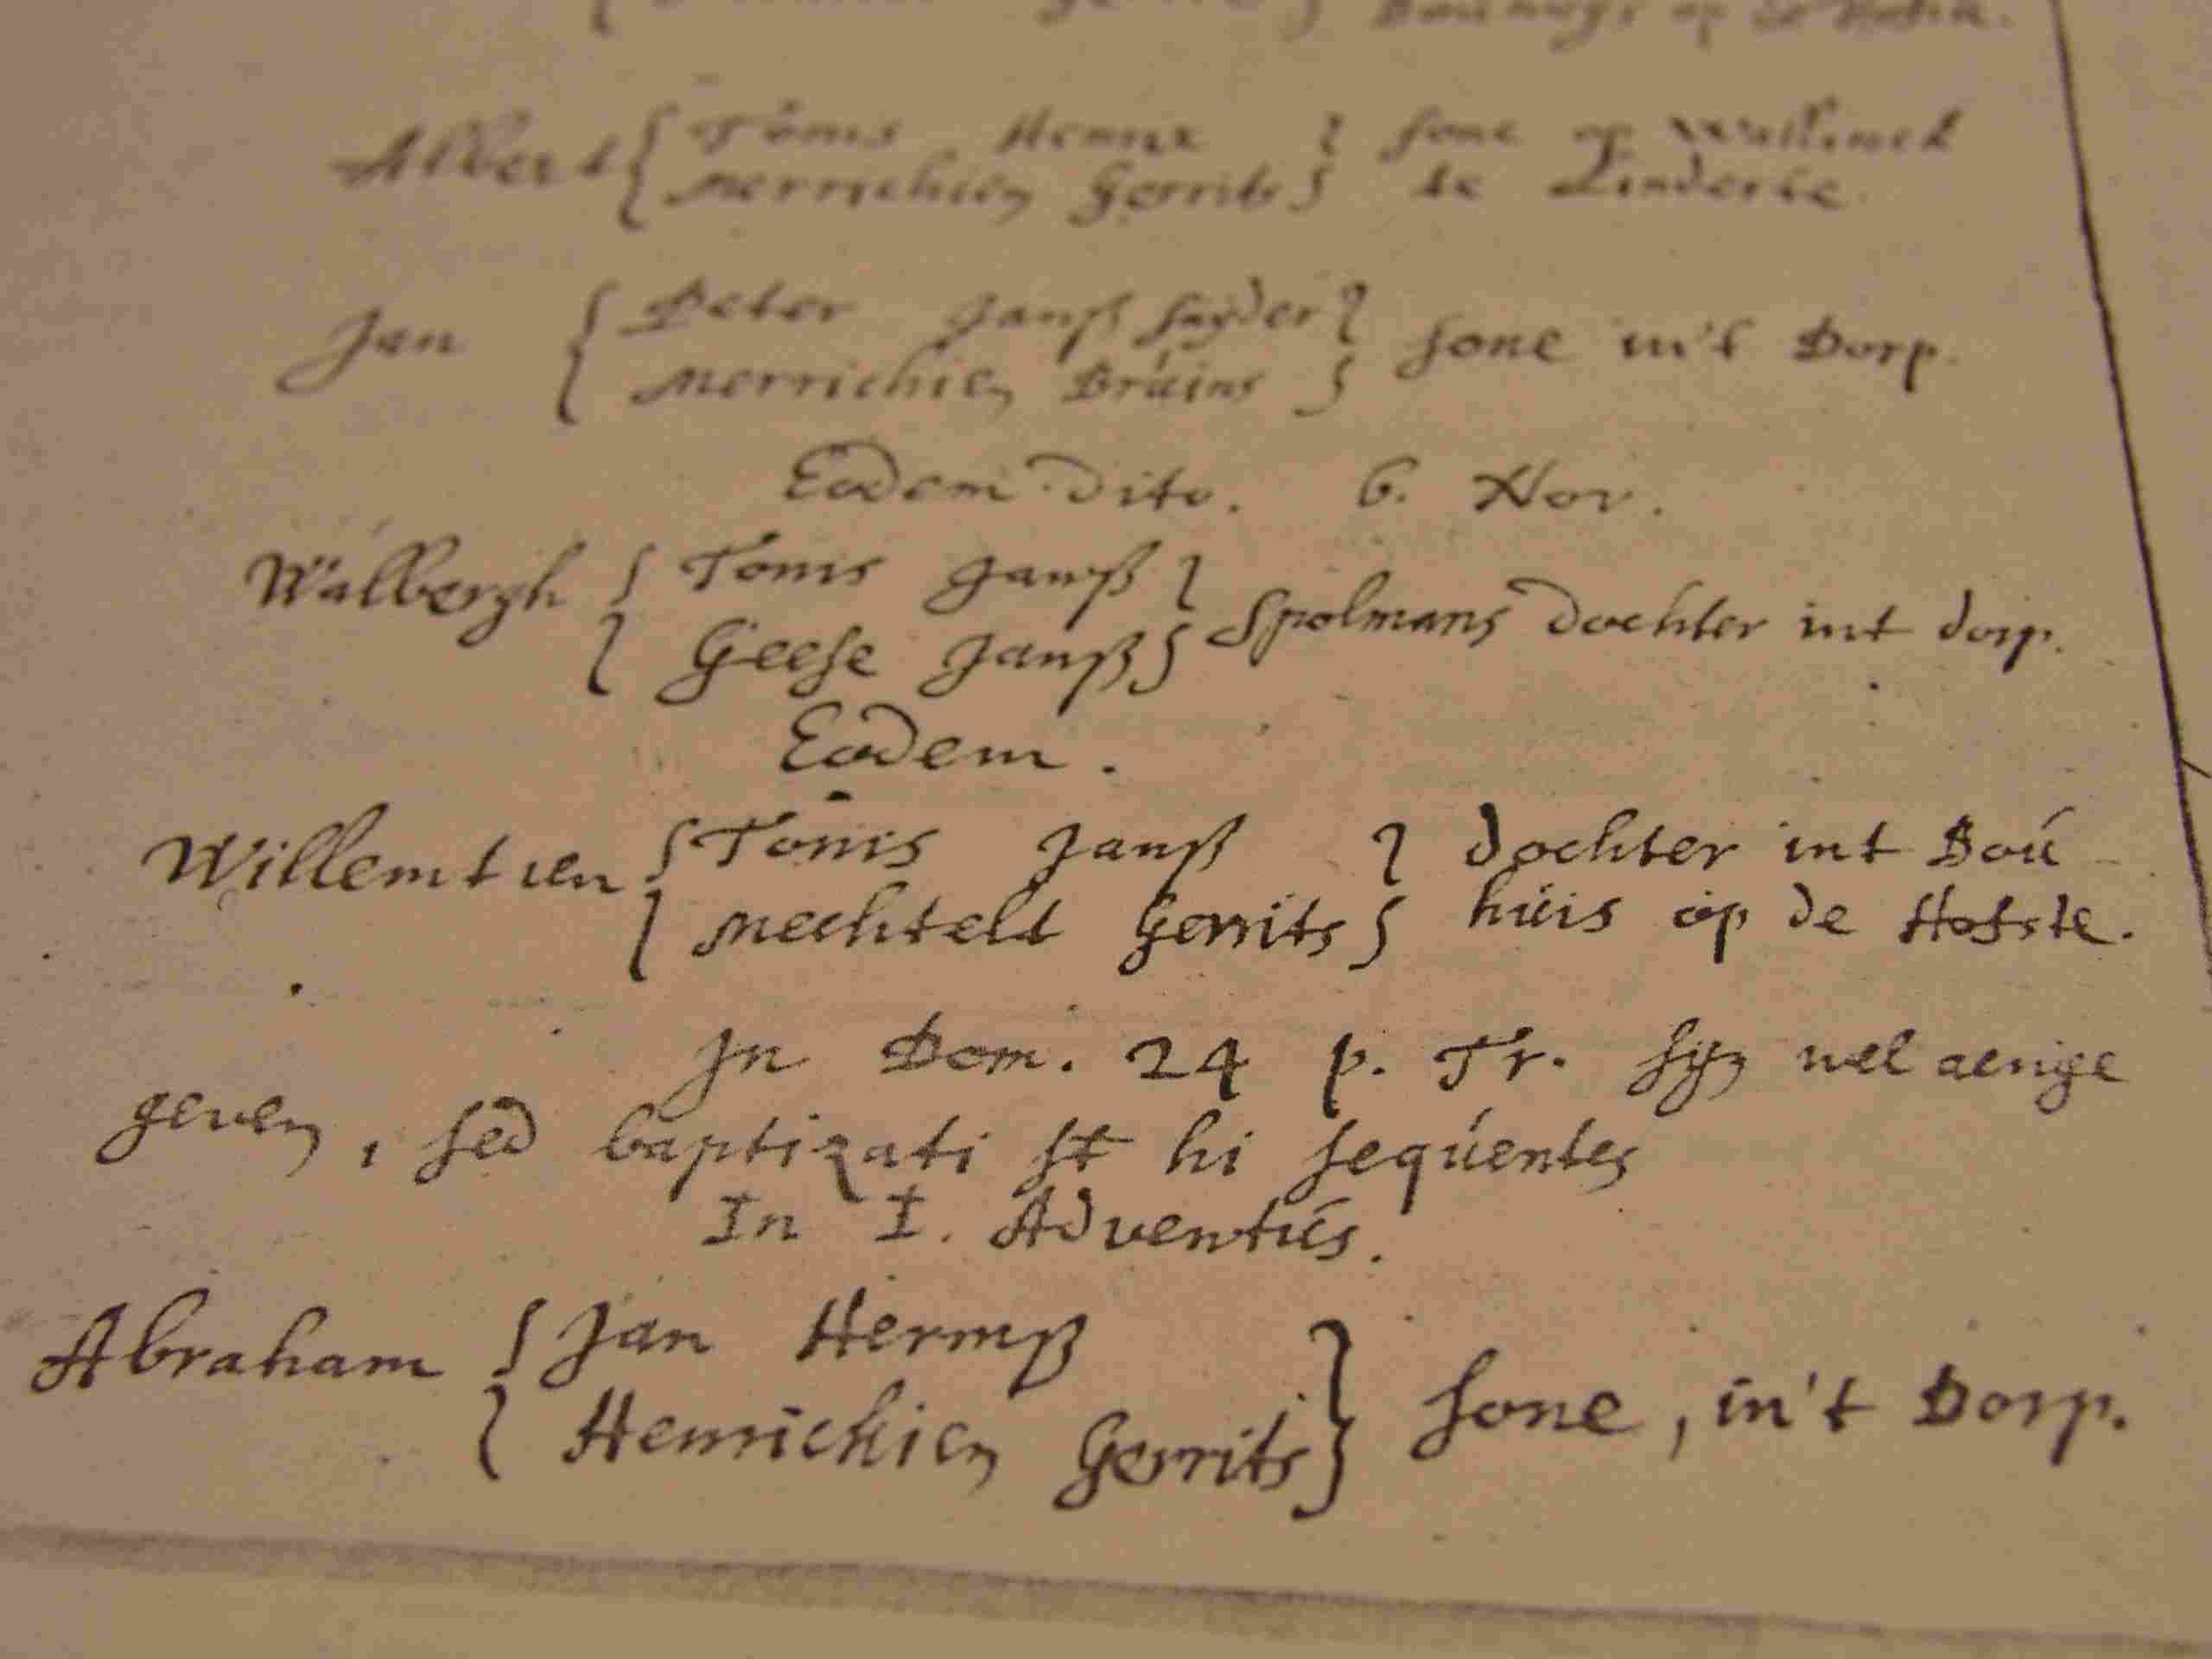 op de
Albert { Tönis Hennx } sone op Wullinck
{ Merrichien Gerrits } te Linderte.
Jan { Peter Janß snyder } sone in't Dorp.
{ Merrichien Brúins }
Eodem dito. 6. Nov.
Walbergh { Tonis Janß } Spolmans dochter int dorp.
{ Geese Janß }
Eodem.
Willemtien { Tonis Janß } dochter int Boú-
{ Mechtelt Gerrits } húis op de Hofste.
In Dom. 24 p. Tr. syn wel aenge
geven, sed baptizati st hi sequentes
In I. Adventús.
Abraham { Jan Hermß } sone, in't Dorp.
{ Henrichien Gerrits }